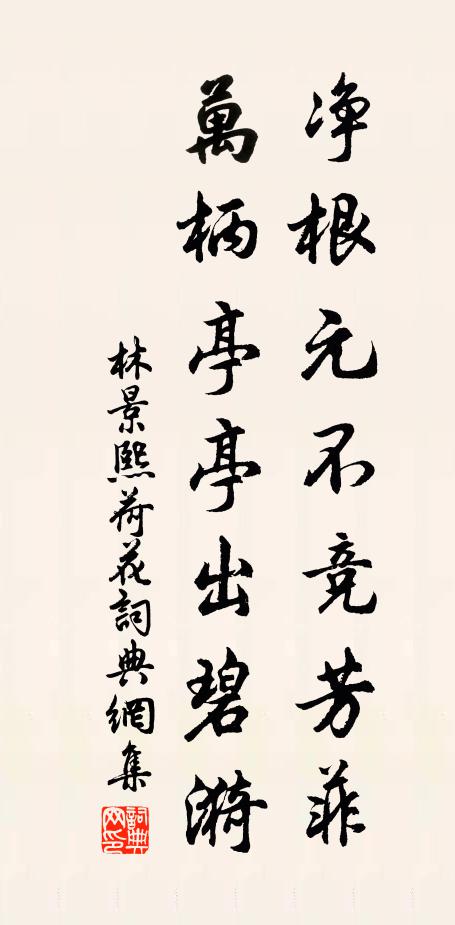 净根元不竞芳菲
萬柄亭亭出碧漪
林景熙荷花詞典網集
詞典網印